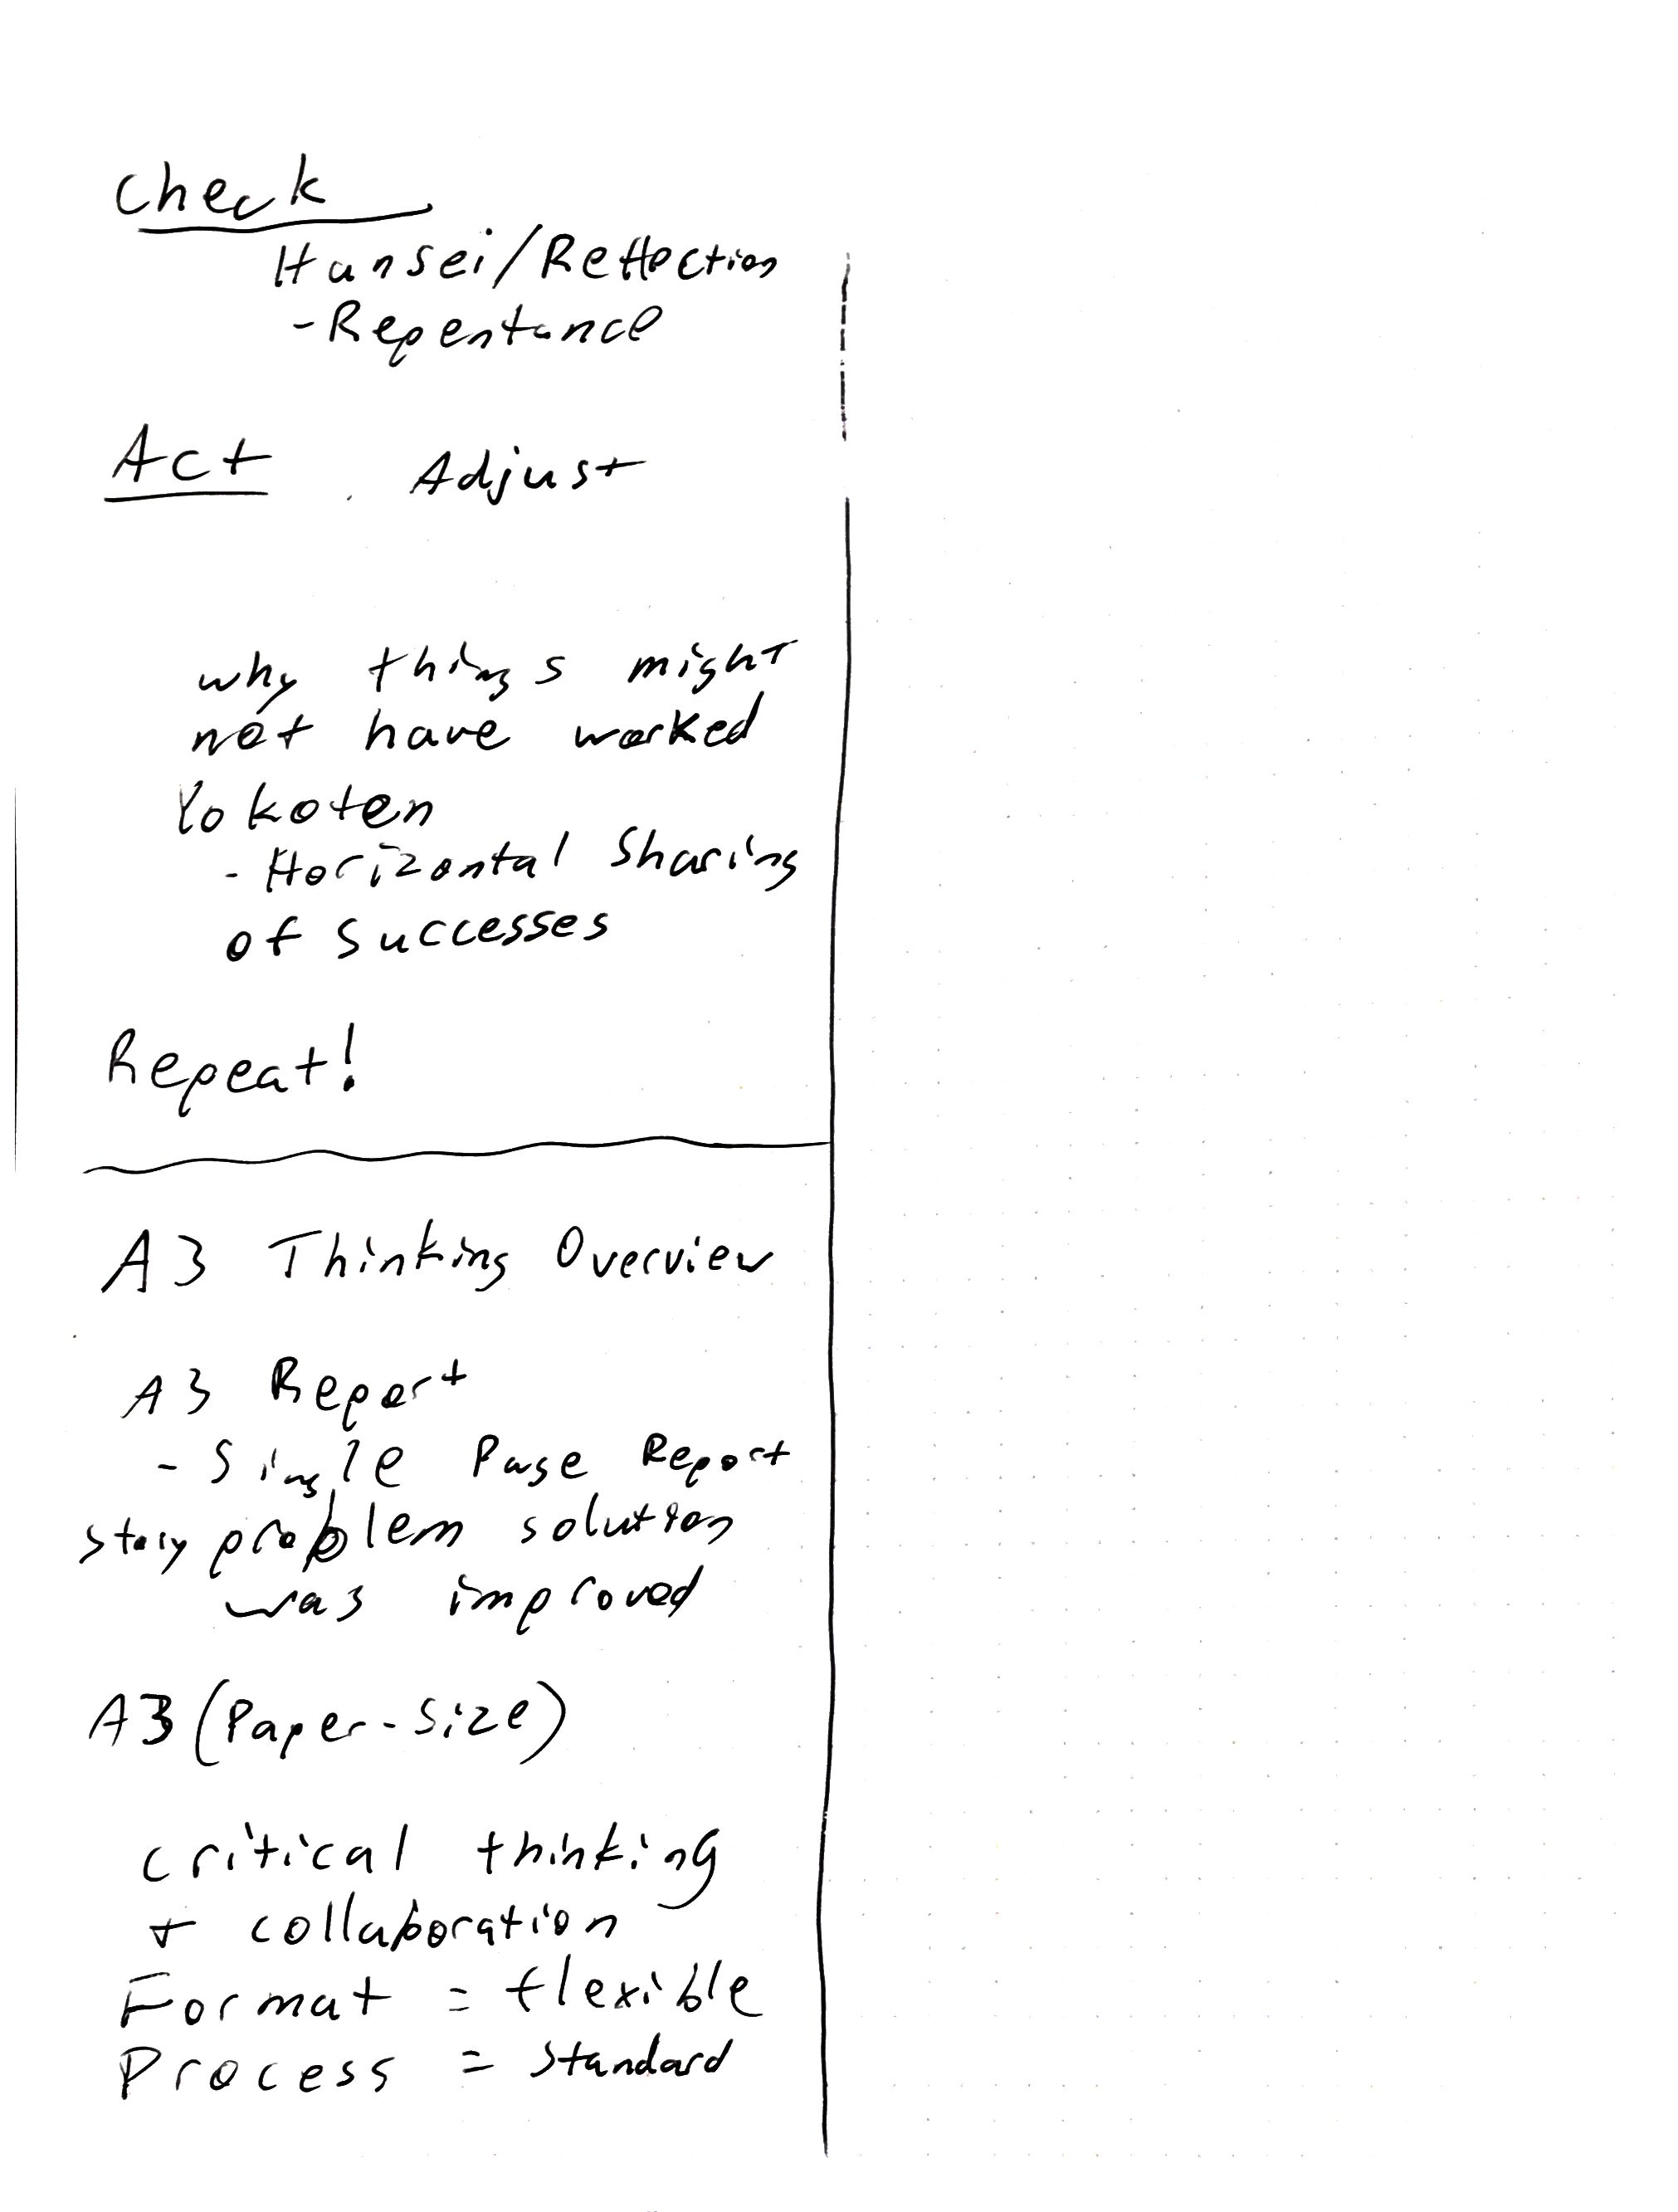 Check
Hansei/Reflection
-Repentance
Act Adjust
why things might
not have worked
Yokoten
- Horizontal Sharing
of successes
Repeat!
A3 Thinking Overview
A3 Report
- Single Page Report
story problem solution
was improved
A3 (Paper-Size)
critical thinking
+ collaboration
Format = flexible
Process = Standard